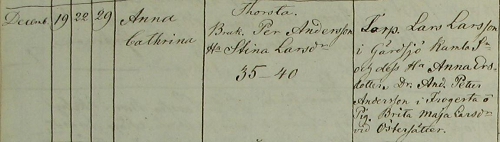 Decemb. 19 22 29 Anna
Cathrina
Thorsta.
Bruk. Per Andersson
Hu Stina Larsdr
35-40
Torp. Lars Larsson
i Gårdsjö Kumla Sn
och dess Hu Anna Ers
dotter, Dr. And. Peter
Andersson i Frogerta o
Pig. Brita Maja Larsdr
vid Ostersätter.